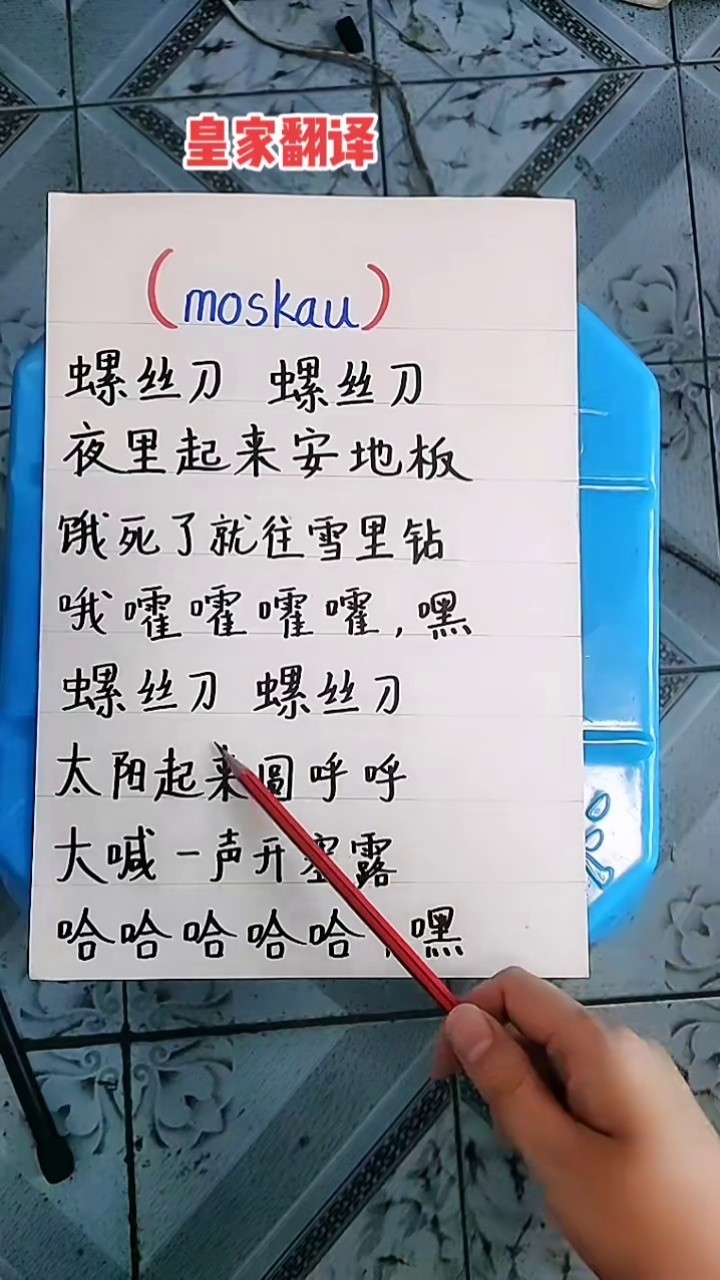 皇家翻译
(moskau)
螺丝刀 螺丝刀
夜里起来安地板
饿死了就往雪里钻
哦嚯嚯嚯嚯,嘿
螺丝刀 螺丝刀
太阳起来圆呼呼
大喊一声开 露
哈哈哈哈哈,嘿